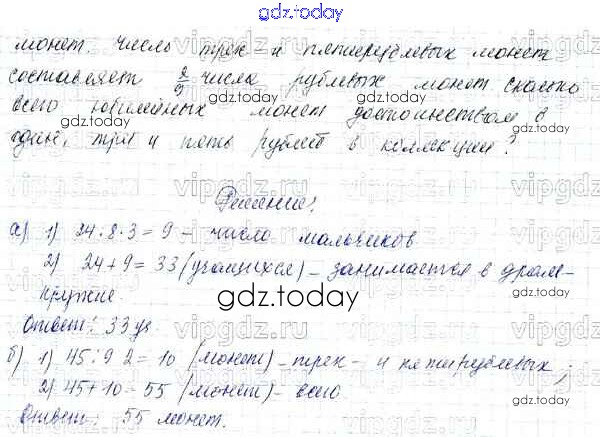 gdz.today
монет. Число трех- и пятирублевых монет
составляет 2/9 числа рублевых монет. Сколько
всего юбилейных монет достоинством в
один, три и пять рублей в коллекции?
Решение:
а) 1) 24 : 8 · 3 = 9 – число мальчиков
2) 24 + 9 = 33 (учащихся) – занимается в драм-
кружке.
Ответ: 33 уч.
б) 1) 45 : 9 2 = 10 (монет) – трех- и пятирублевых;
2) 45 + 10 – 55 (монет) – всего
Ответ: 55 монет.
vipgdz.ru
gdz.today